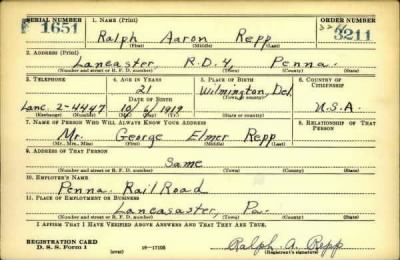 SERIAL NUMBER 1. NAME (Print) ORDER NUMBER
1651 Ralph Aaron Repp 3211
(First) (Middle) (Last)
2. ADDRESS (Print)
Lancaster, R.D.4, Penna.
(Number and street or R. F. D. number) (Town) (County) (State)
3. TELEPHONE 4. AGE IN YEARS 5. PLACE OF BIRTH 6. COUNTRY OF CITIZENSHIP
21 Wilmington, Del.
DATE OF BIRTH (Town or county)
Lanc. 2-4447 10/6/1919 U.S.A.
(Exchange) (Number) (Mo.) (Day) (Yr.) (State or country)
7. NAME OF PERSON WHO WILL ALWAYS KNOW YOUR ADDRESS 8. RELATIONSHIP OF THAT PERSON
Mr. George Elmer Repp
(Mr., Mrs., Miss) (First) (Middle) (Last)
9. ADDRESS OF THAT PERSON
Same
(Number and street or R. F. D. number) (Town) (County) (State)
10. EMPLOYER'S NAME
Penna. Rail Road
11. PLACE OF EMPLOYMENT OR BUSINESS
Lancasaster, Pa.
(Number and street or R. F. D. number) (Town) (County) (State)
I AFFIRM THAT I HAVE VERIFIED ABOVE ANSWERS AND THAT THEY ARE TRUE.
REGISTRATION CARD
D. S. S. Form 1 (over) 16—17105 Ralph A. Repp
(Registrant's signature)